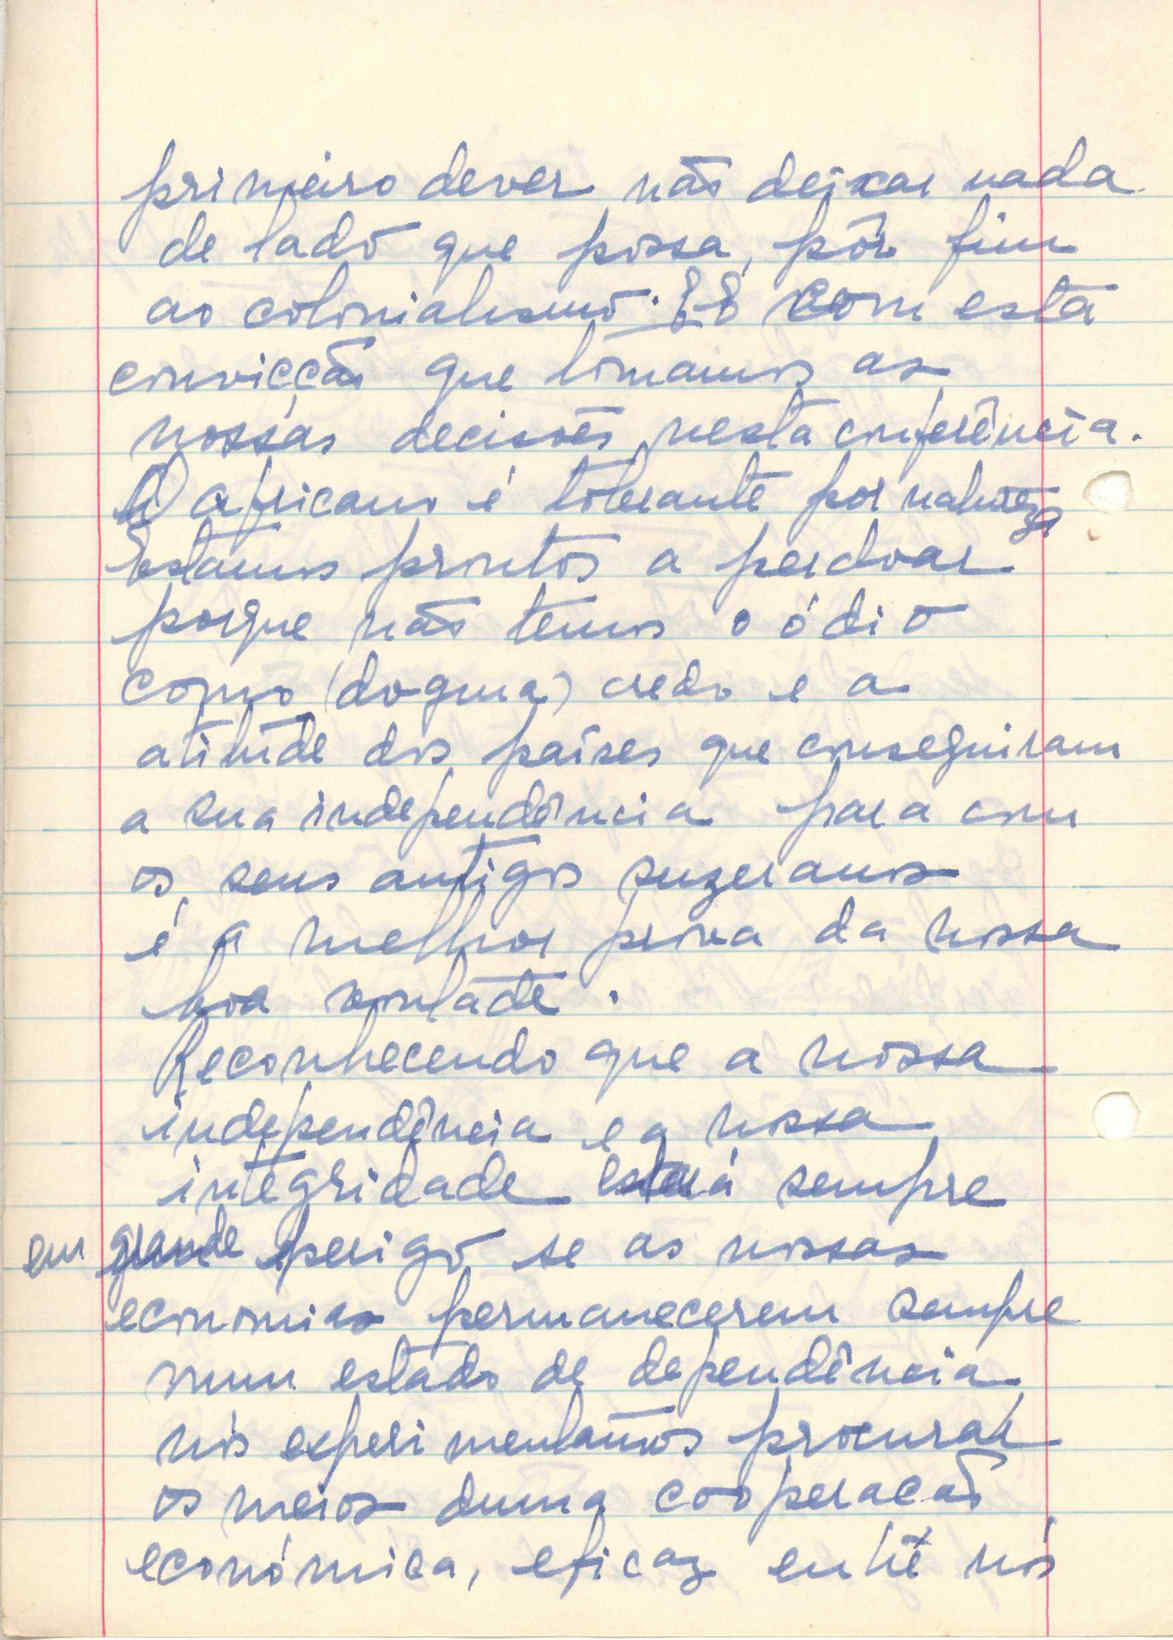 primeiro dever não deixar nada
de lado que possa pôr fim
ao colonialismo. É com esta
convicção que tomamos as
nossas decisões nesta conferência.
O africano é tolerante por natureza
Estamos prontos a perdoar
porque não temos o ódio
como (dogma) credo e a
atitude dos países que conseguiram
a sua independência para com
os seus antigos suzeranos
é a melhor prova da nossa
boa vontade.
Reconhecendo que a nossa
independência e a nossa
integridade estará sempre
em grande perigo se as nossas
economias permanecerem sempre
num estado de dependência
nós experimentamos procurar
os meios duma cooperação
económica, eficaz entre nós